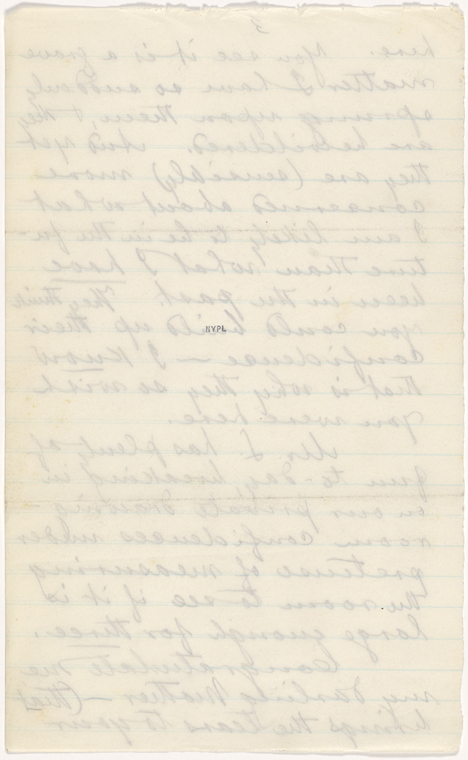 3
here. You see it is a grave
matter I have so suddenly
sprung upon them & they
are bewildered. And yet
they are (sensibly) more
concerned about what
I am likely to be in the fu-
ture than what I have
been in the past. They think
you could build up their
confidence — I know
that is why they so wish
you were here.
Mr I. has plenty of
fun to-day, breaking in
on our private drawing-
room confidences under
pretense of measuring
the room to see if it is
large enough for three.
Congratulate me
my darling Mother — (that
brings the tears to your
NYPL